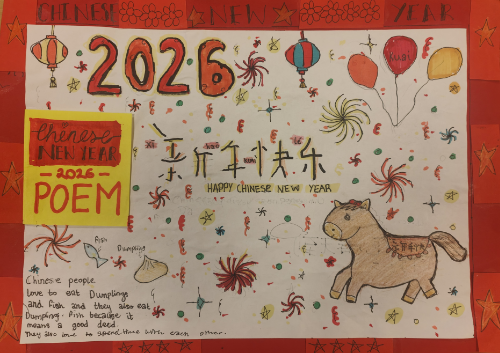 CHINESE NEW YEAR
2026
Chinese
NEW YEAR
2026
POEM
新年快乐
HAPPY CHINESE NEW YEAR
Fish
Dumpling
Chinese people
love to eat Dumplings
and Fish and they also eat
Dumpling. Fish because it
means a good deed.
They also love to spend time with each other.